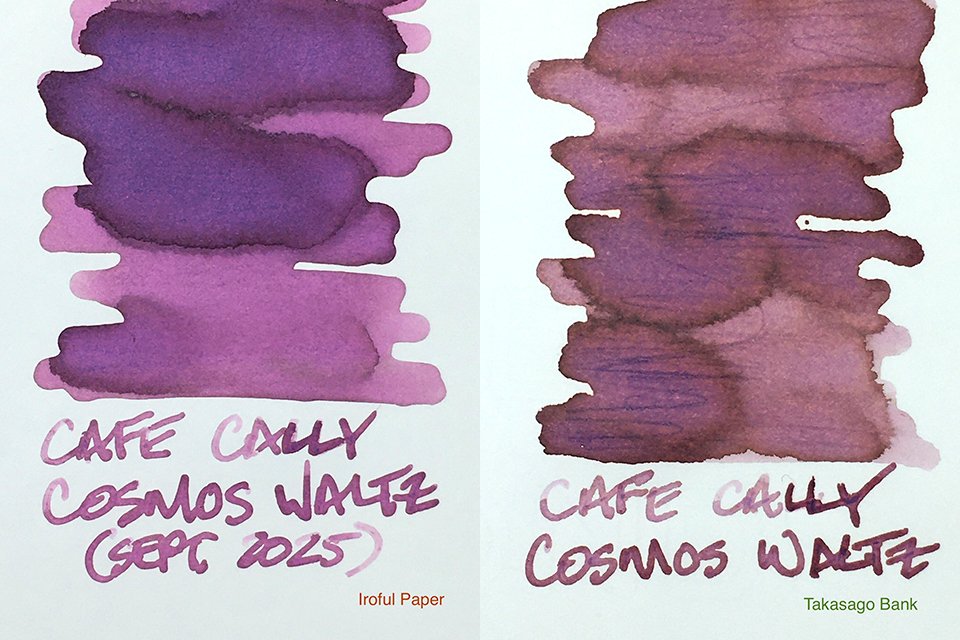 CAFE CALLY
COSMOS WALTZ
(SEPT. 2025)
Iroful Paper
CAFE CALLY
COSMOS WALTZ
Takasago Bank